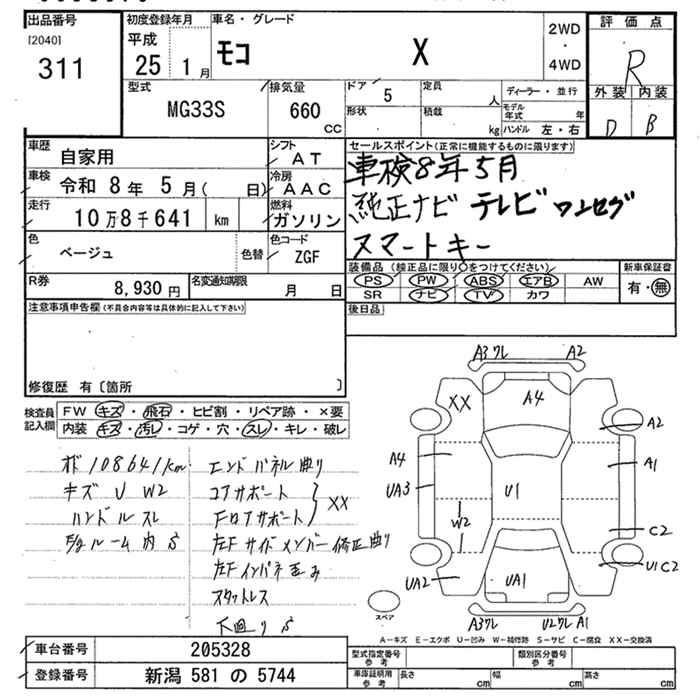 出品番号
[2040]
311
初度登録年月
平成
25 1 月
車名・グレード
モコ X
2WD
・
4WD
評価点
R
外装 内装
D B
型式
MG33S
排気量
660 CC
ドア 5
形状
定員 人
積載 kg
ディーラー・並行
モデル年式 年
ハンドル 左・右
車歴 自家用
シフト AT
車検 令和 8 年 5 月 ( 日)
冷房 AAC
走行 10万8千641 km
燃料 ガソリン
色 ベージュ 色替
色コード ZGF
R券 8,930 円
名変通知期限 月 日
セールスポイント(正常に機能するものに限ります)
車検8年5月
純正ナビ テレビ ワンセグ
スマートキー
装備品 (純正品に限り○をつけてください)
PS PW ABS エアB AW
SR ナビ TV カワ
新車保証書
有・無
注意事項申告欄(不具合内容等は具体的に記入して下さい)
後日品
修復歴 有〔箇所 〕
検査員記入欄
FW キズ・飛石・ヒビ割・リペア跡・×要
内装 キズ・汚レ・コゲ・穴・スレ・キレ・破レ
108641km
キズ U W2
ハンドルスレ
E/gルーム内 S
エンドパネル曲り
コアサポート
フロアサポート
XX
左F サイドメンバー修正曲り
左Fインパネ歪み
スタットレス
下廻りS
A3ワレ A2
XX A4
A2
A4 A1
UA3 U1
W2 C2
U1C2
UA2 UA1
スペア
A3ワレ U2ワレ A1
A-キズ E-エクボ U-凹み W-補修跡 S-サビ C-腐食 XX-交換済
車台番号 205328
登録番号 新潟 581 の 5744
型式指定番号 参考
類別区分番号 参考
車庫証明用 参考
長さ cm 幅 cm 高さ cm